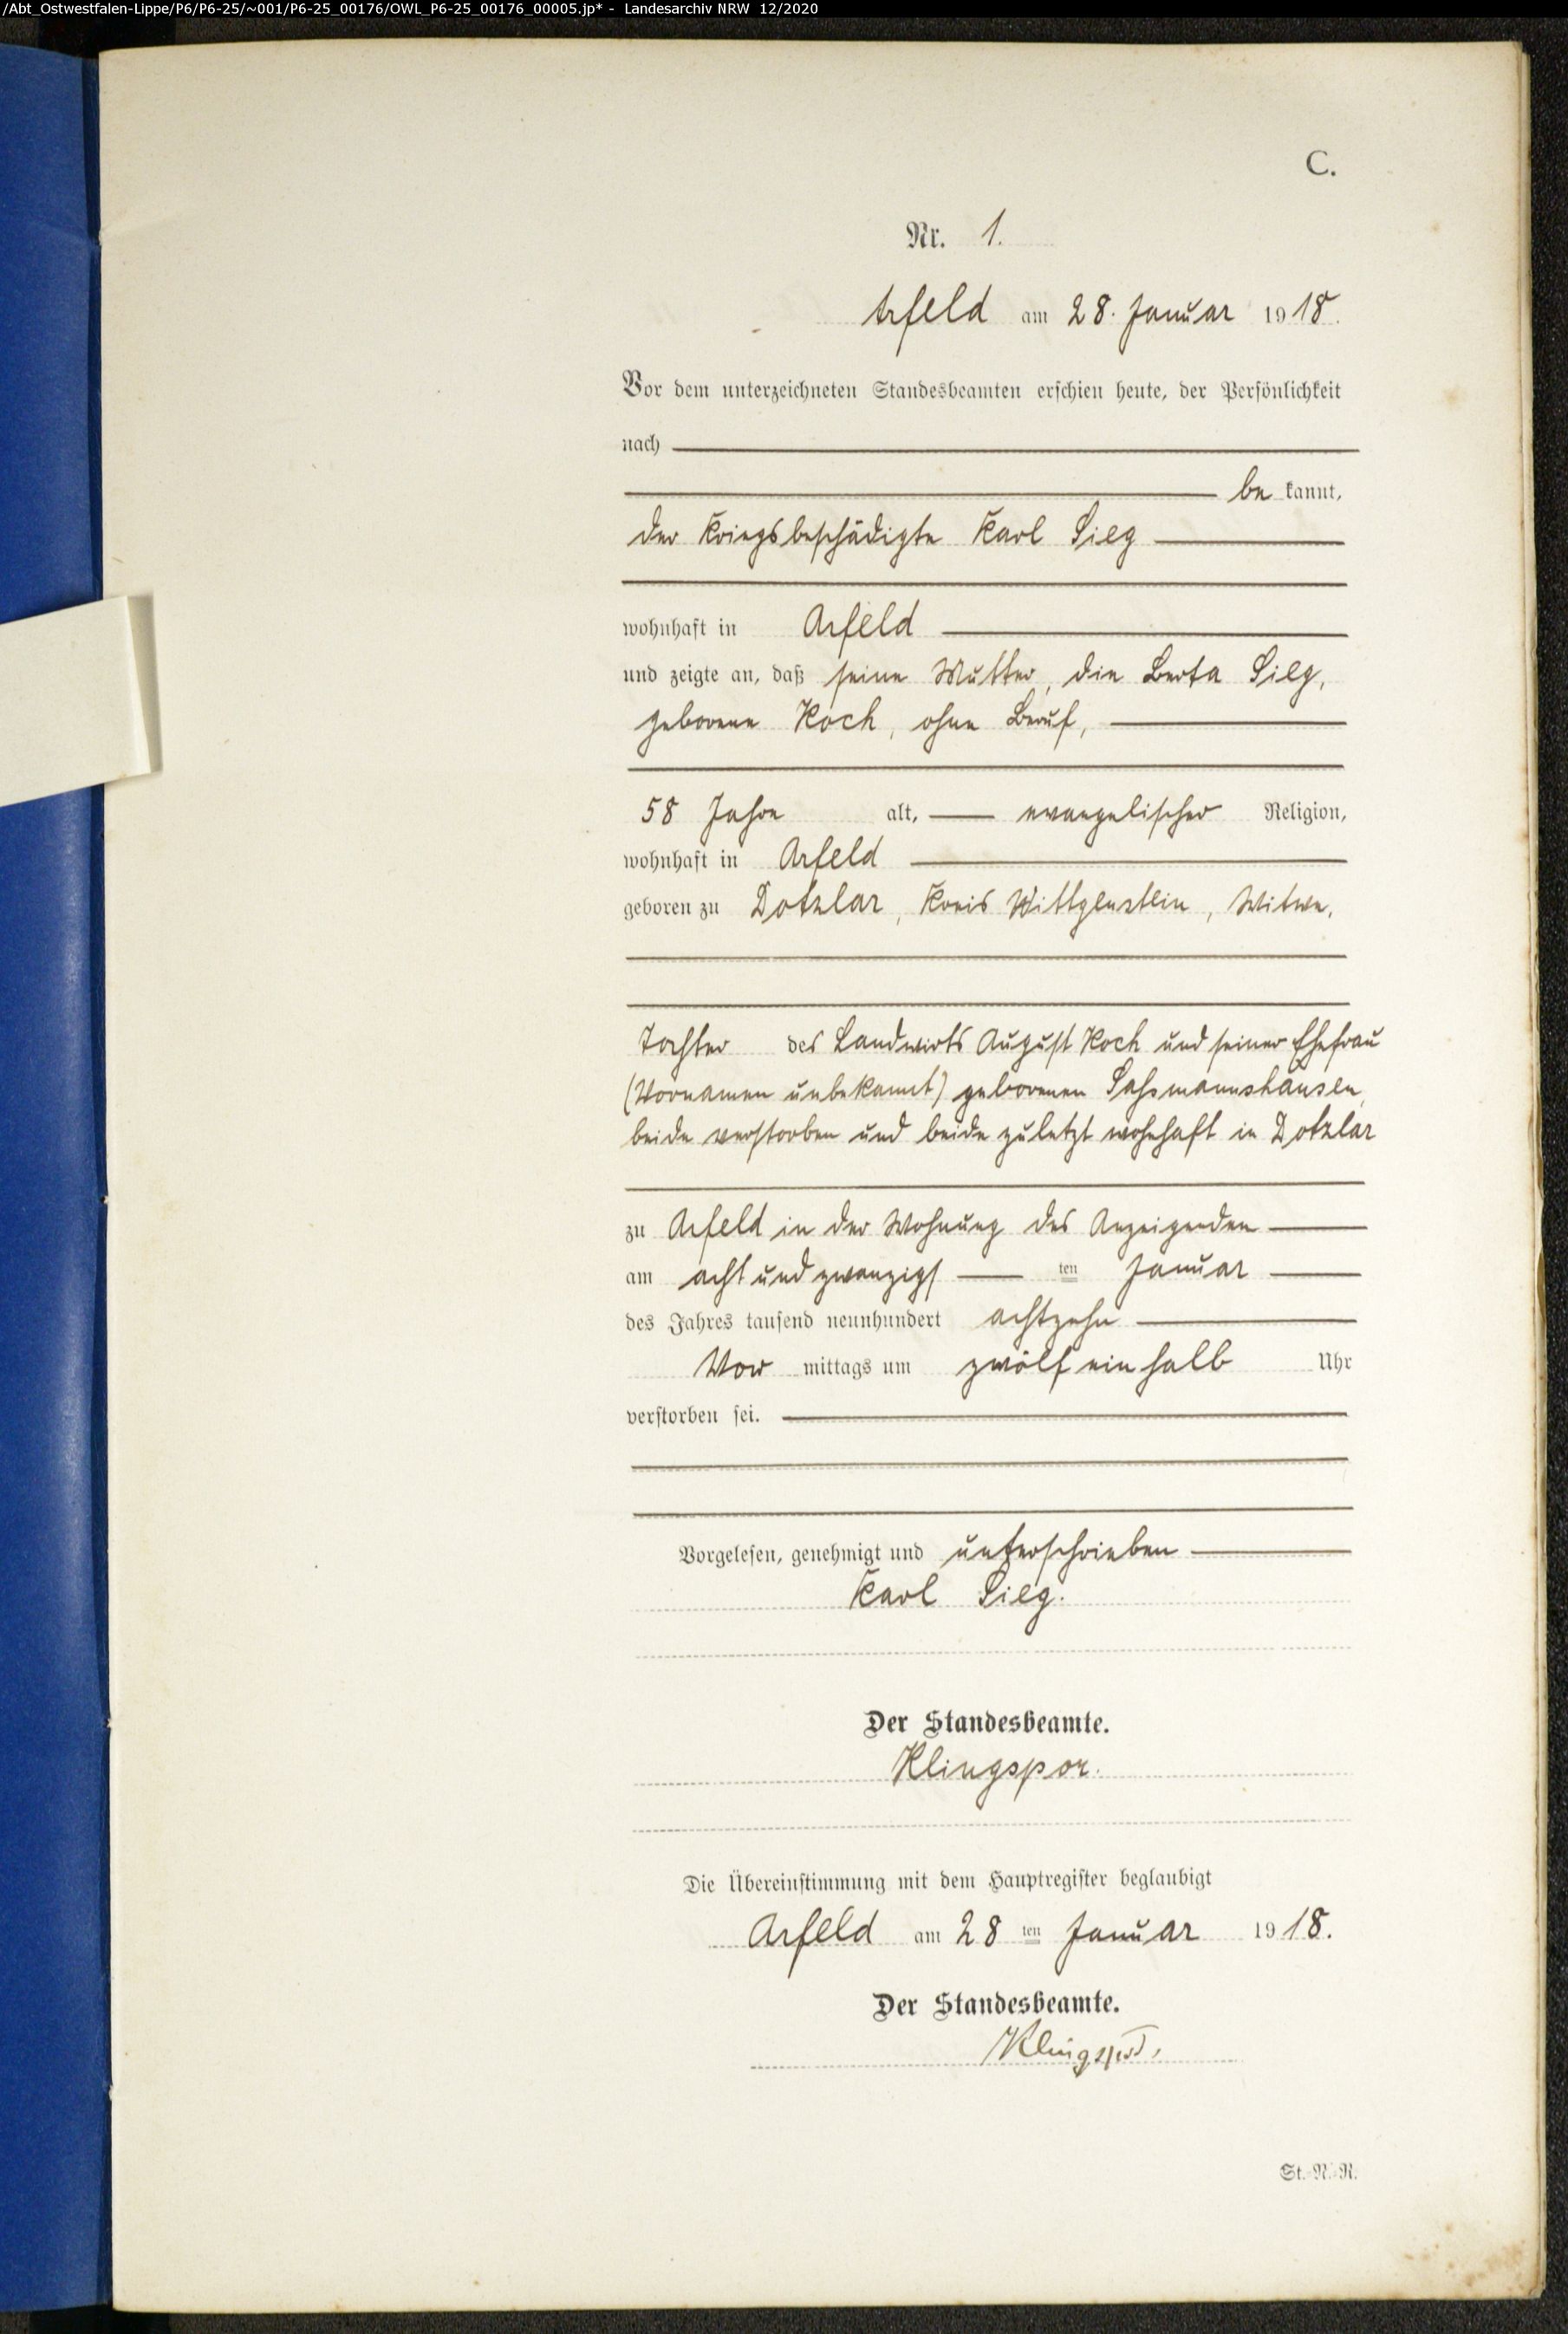 /Abt_Ostwestfalen-Lippe/P6/P6-25/~001/P6-25_00176/OWL_P6-25_00176_00005.jp* - Landesarchiv NRW 12/2020
C.
Nr. 1.
Arfeld am 28. Januar 1918.
Vor dem unterzeichneten Standesbeamten erschien heute, der Persönlichkeit
nach
be kannt,
der Kriegsbeschädigte Karl Sieg
wohnhaft in Arfeld
und zeigte an, daß seine Mutter, die Berta Sieg,
geborene Koch, ohne Beruf,
58 Jahre alt, evangelischer Religion,
wohnhaft in Arfeld
geboren zu Dotzlar, Kreis Wittgenstein, Witwe,
Tochter des Landwirts August Koch und seiner Ehefrau
(Vornamen unbekannt) geborenen Saßmannshausen,
beide verstorben und beide zuletzt wohnhaft in Dotzlar
zu Arfeld in der Wohnung des Anzeigenden
am acht und zwanzigs ten Januar
des Jahres tausend neunhundert achtzehn
Vor mittags um zwölf ein halb Uhr
verstorben sei.
Vorgelesen, genehmigt und unterschrieben
Karl Sieg.
Der Standesbeamte.
Klingspor.
Die Übereinstimmung mit dem Hauptregister beglaubigt
Arfeld am 28 ten Januar 1918.
Der Standesbeamte.
Klingspor.
St.-N.-R.